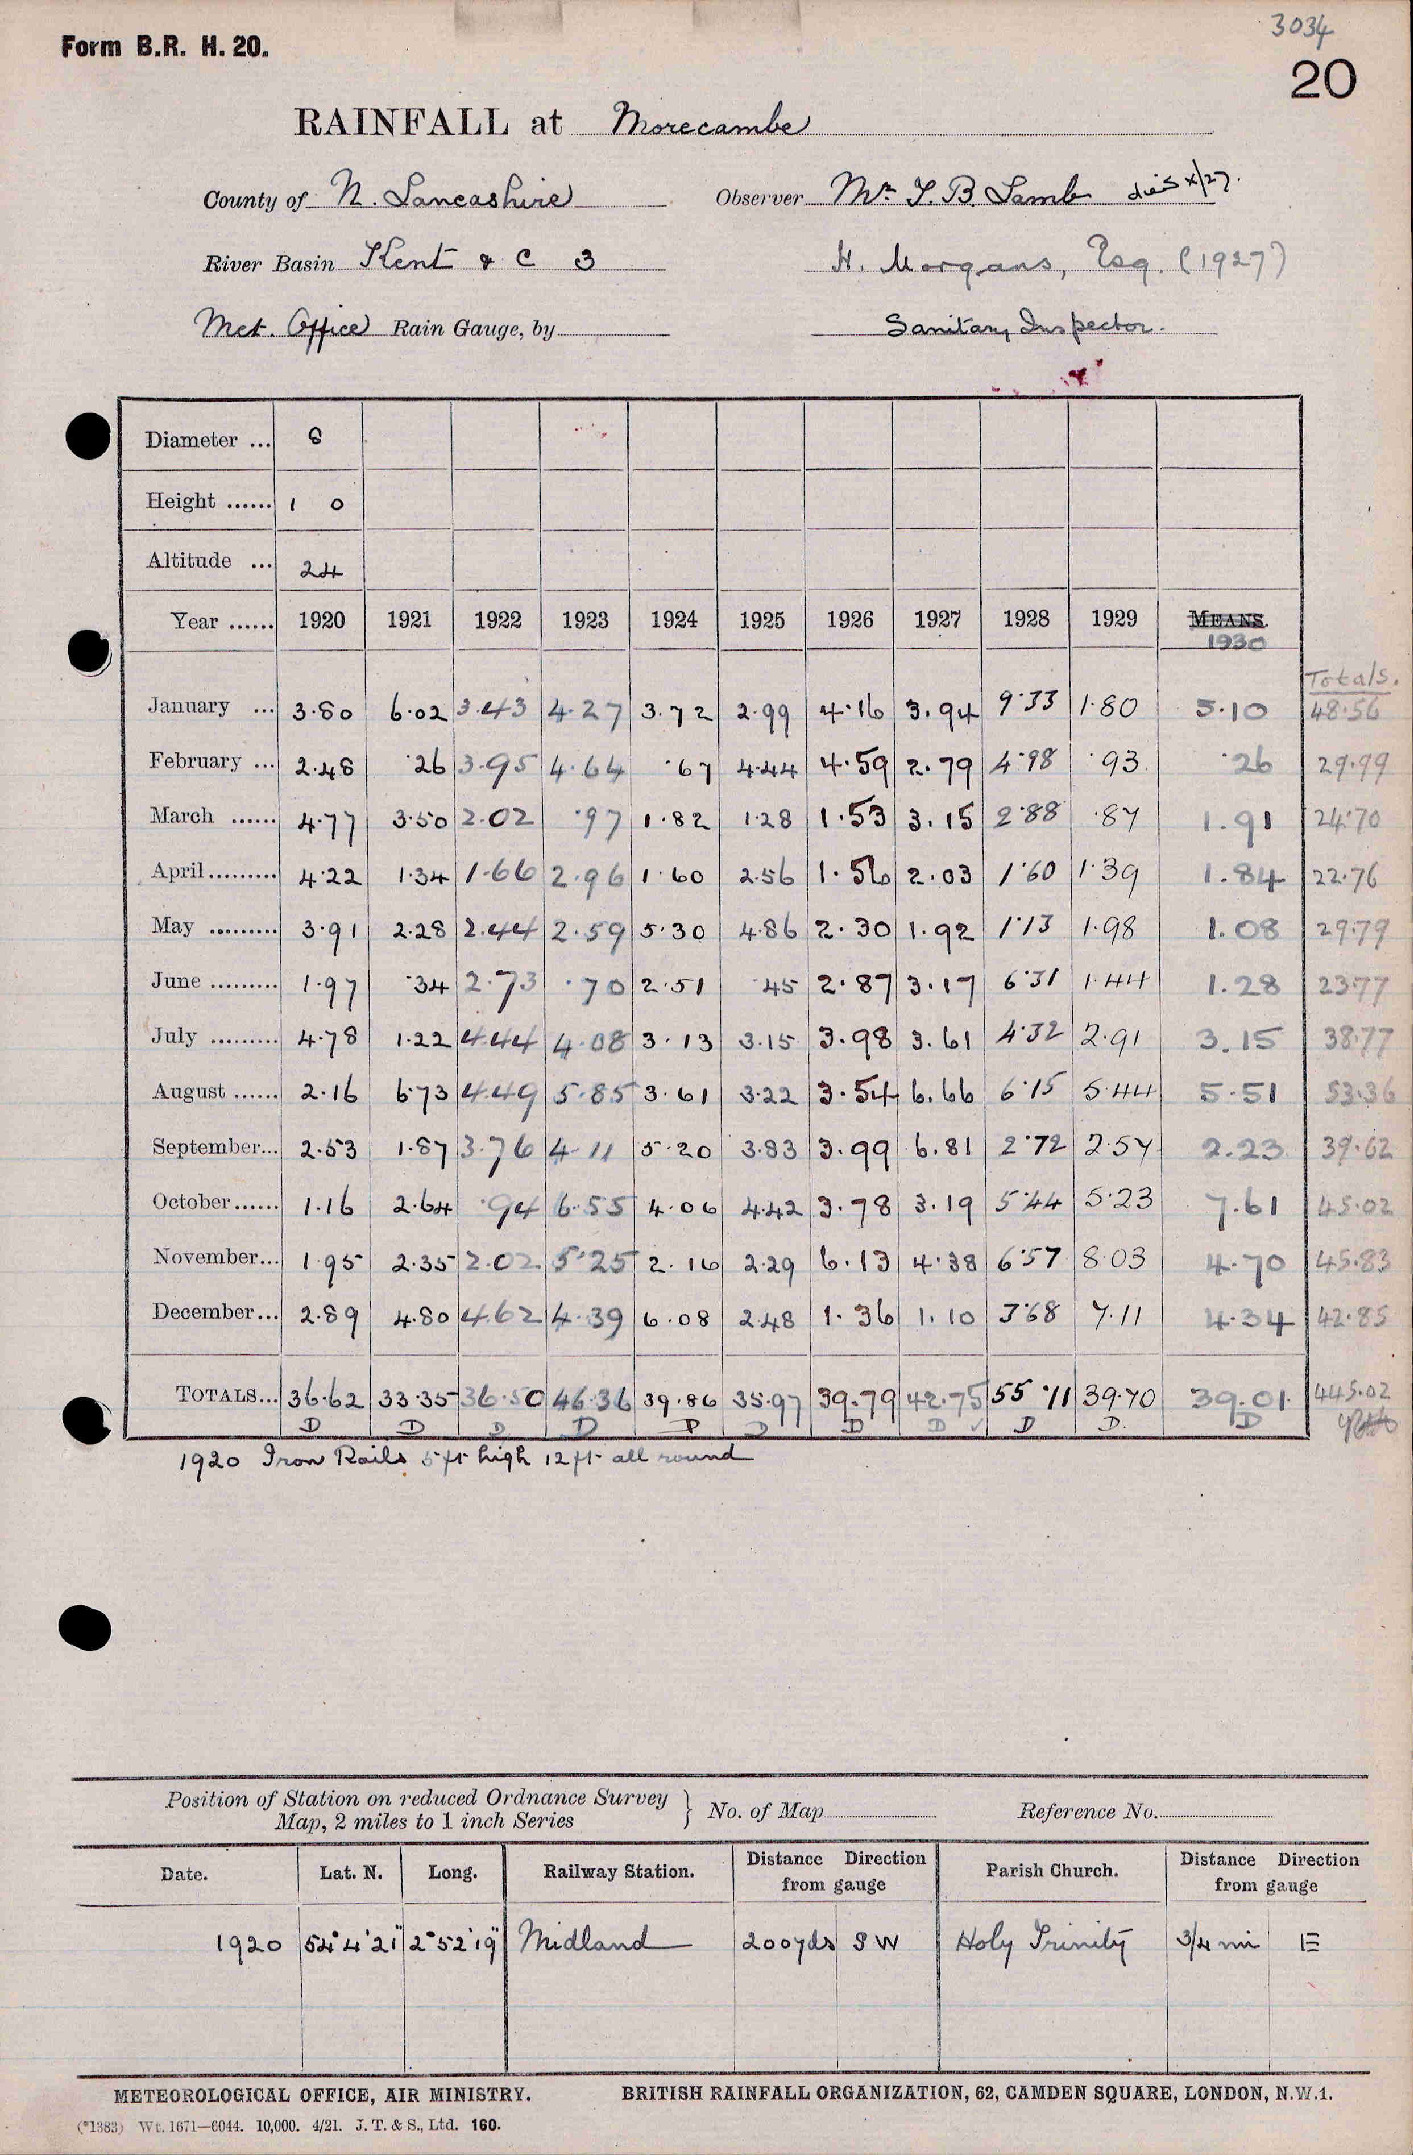 3034
Form B.R. H. 20.
20
RAINFALL at Morecambe
County of N. Lancashire Observer Mr. T. B. Lamb died x/27.
River Basin Kent & C 3 H. Morgans, Esq. (1927)
Met. Office Rain Gauge, by Sanitary Inspector.
Diameter ... 8
Height ...... 1 0
Altitude ... 24
Year ...... 1920 1921 1922 1923 1924 1925 1926 1927 1928 1929 MEANS.
1930
Totals.
January ... 3.80 6.02 3.43 4.27 3.72 2.99 4.16 3.94 9.33 1.80 5.10 48.56
February ... 2.48 .26 3.95 4.64 .67 4.44 4.59 2.79 4.98 .93 .26 29.99
March ...... 4.77 3.50 2.02 .97 1.82 1.28 1.53 3.15 2.88 .87 1.91 24.70
April ......... 4.22 1.34 1.66 2.96 1.60 2.56 1.56 2.03 1.60 1.39 1.84 22.76
May ......... 3.91 2.28 2.44 2.59 5.30 4.86 2.30 1.92 1.13 1.98 1.08 29.79
June ......... 1.97 .34 2.73 .70 2.51 .45 2.87 3.17 6.31 1.44 1.28 23.77
July ......... 4.78 1.22 4.44 4.08 3.13 3.15 3.98 3.61 4.32 2.91 3.15 38.77
August ...... 2.16 6.73 4.49 5.85 3.61 3.22 3.54 6.66 6.15 5.44 5.51 53.36
September... 2.53 1.87 3.76 4.11 5.20 3.83 3.99 6.81 2.72 2.57 2.23 39.62
October...... 1.16 2.64 .94 6.55 4.06 4.42 3.78 3.19 5.44 5.23 7.61 45.02
November... 1.95 2.35 2.02 5.25 2.16 2.29 6.13 4.38 6.57 8.03 4.70 45.83
December... 2.89 4.80 4.62 4.39 6.08 2.48 1.36 1.10 3.68 7.11 4.34 42.85
TOTALS... 36.62 33.35 36.50 46.36 39.86 35.97 39.79 42.75 55.11 39.70 39.01 445.02
D D D D D D D D ✓ D D. D
1920 Iron Rails 5 ft high 12 ft all round
Position of Station on reduced Ordnance Survey
Map, 2 miles to 1 inch Series } No. of Map Reference No.
Date. Lat. N. Long. Railway Station. Distance Direction from gauge Parish Church. Distance Direction from gauge
1920 54° 4' 21" 2° 52' 19" Midland 200 yds S W Holy Trinity 3/4 mi E
METEOROLOGICAL OFFICE, AIR MINISTRY. BRITISH RAINFALL ORGANIZATION, 62, CAMDEN SQUARE, LONDON, N.W.1.
(*1383) Wt. 1671—6044. 10,000. 4/21. J. T. & S., Ltd. 160.